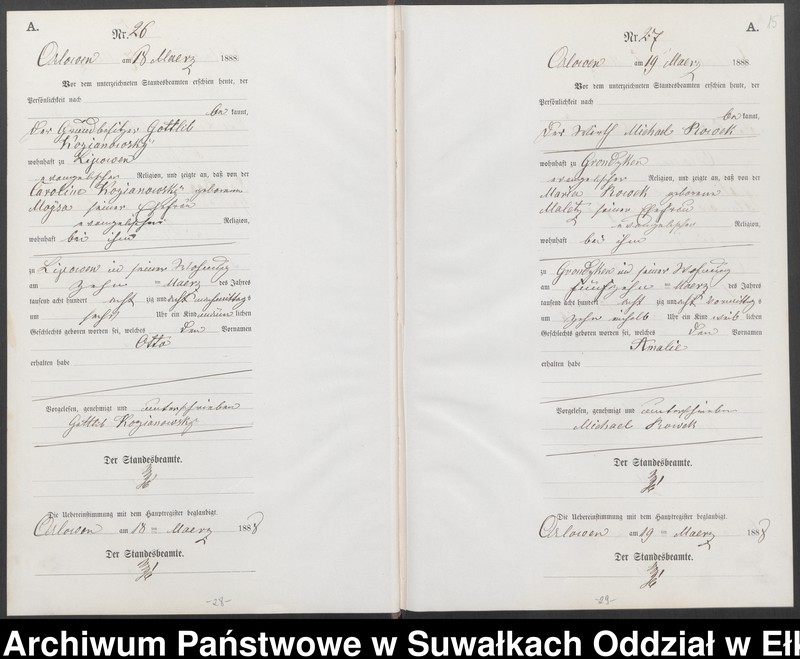 A.
Nr. 26
Orlowen am 18 Maerz 1888.
Vor dem unterzeichneten Standesbeamten erschien heute, der
Persönlichkeit nach
be kannt,
der Grundbesitzer Gottlieb
Kozianowski
wohnhaft zu Lipowen
evangelischer Religion, und zeigte an, daß von der
Caroline Kozianowski geborenen
Moysa seiner Ehefrau
evangelischer Religion,
wohnhaft bei ihm
zu Lipowen in seiner Wohnung
am Zehn ten Maerz des Jahres
tausend acht hundert acht zig und acht nachmittags
um sechs Uhr ein Kind männ lichen
Geschlechts geboren worden sei, welches den Vornamen
Otto
erhalten habe
Vorgelesen, genehmigt und unterschrieben
Gottlieb Kozianowski
Der Standesbeamte.
Die Uebereinstimmung mit dem Hauptregister beglaubigt.
Orlowen am 18 ten Maerz 1888
Der Standesbeamte.
-28-
15
Nr. 27 A.
Orlowen am 19 Maerz 1888.
Vor dem unterzeichneten Standesbeamten erschien heute, der
Persönlichkeit nach
be kannt,
der Wirth Michael Kowek
wohnhaft zu Grondzken
evangelischer Religion, und zeigte an, daß von der
Maria Kowek geborenen
Maletz seiner Ehefrau
evangelischer Religion,
wohnhaft bei ihm
zu Grondzken in seiner Wohnung
am fünfzehn ten Maerz des Jahres
tausend acht hundert acht zig und acht vormittags
um zehn einhalb Uhr ein Kind weib lichen
Geschlechts geboren worden sei, welches den Vornamen
Amalie
erhalten habe
Vorgelesen, genehmigt und unterschrieben
Michael Kowek
Der Standesbeamte.
Die Uebereinstimmung mit dem Hauptregister beglaubigt.
Orlowen am 19 ten Maerz 1888
Der Standesbeamte.
-29-
Archiwum Państwowe w Suwałkach Oddział w Eł